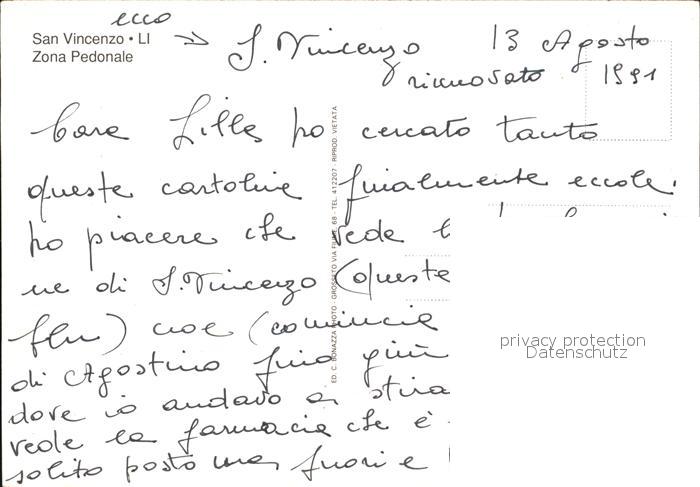 ecco
San Vincenzo • LI
Zona Pedonale
S. Vincenzo 13 Agosto
rinnovato 1991
Cara Lilla ho cercato tanto
queste cartoline finalmente eccole.
ho piacere che vede
ne di S. Vincenzo (queste
) cioè (comincia
di Agostino fino giù
dove io andavo a stira
vede la farmacia che è
solito posto ma fuori e
ED. C. BONAZZA PHOTO - GROSSETO VIA 68 - TEL. 412207 RIPROD. VIETATA
privacy protection
Datenschutz